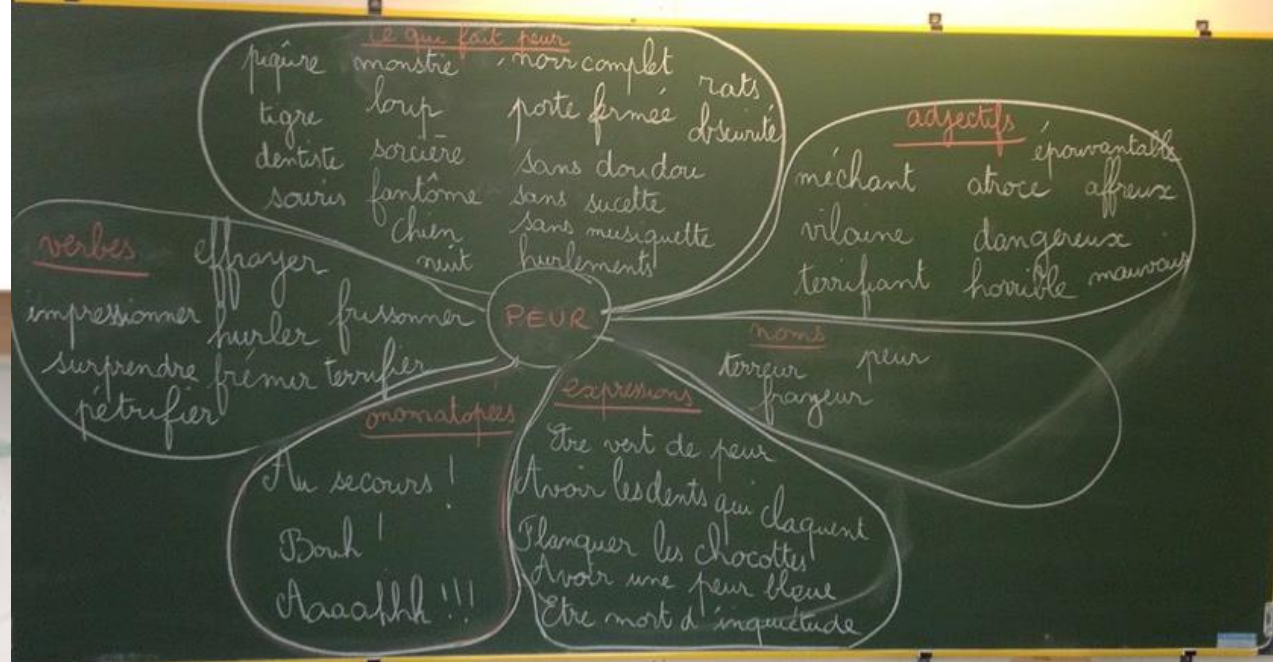 ce que fait peur
piqûre monstre noir complet rats
tigre loup porte fermée obscurité
dentiste sorcière sans doudou
souris fantôme sans sucette
chien sans musiquette
nuit hurlements
adjectifs
épouvantable
méchant atroce affreux
vilaine dangereux
terrifiant horrible mauvais
verbes
effrayer
impressionner hurler frissonner
surprendre frémir terrifier
pétrifier
PEUR
noms
terreur peur
frayeur
onomatopées
Au secours !
Bouh !
Aaaahhh !!!
expressions
Etre vert de peur
Avoir les dents qui claquent
Flanquer les chocottes
Avoir une peur bleue
Etre mort d'inquiétude